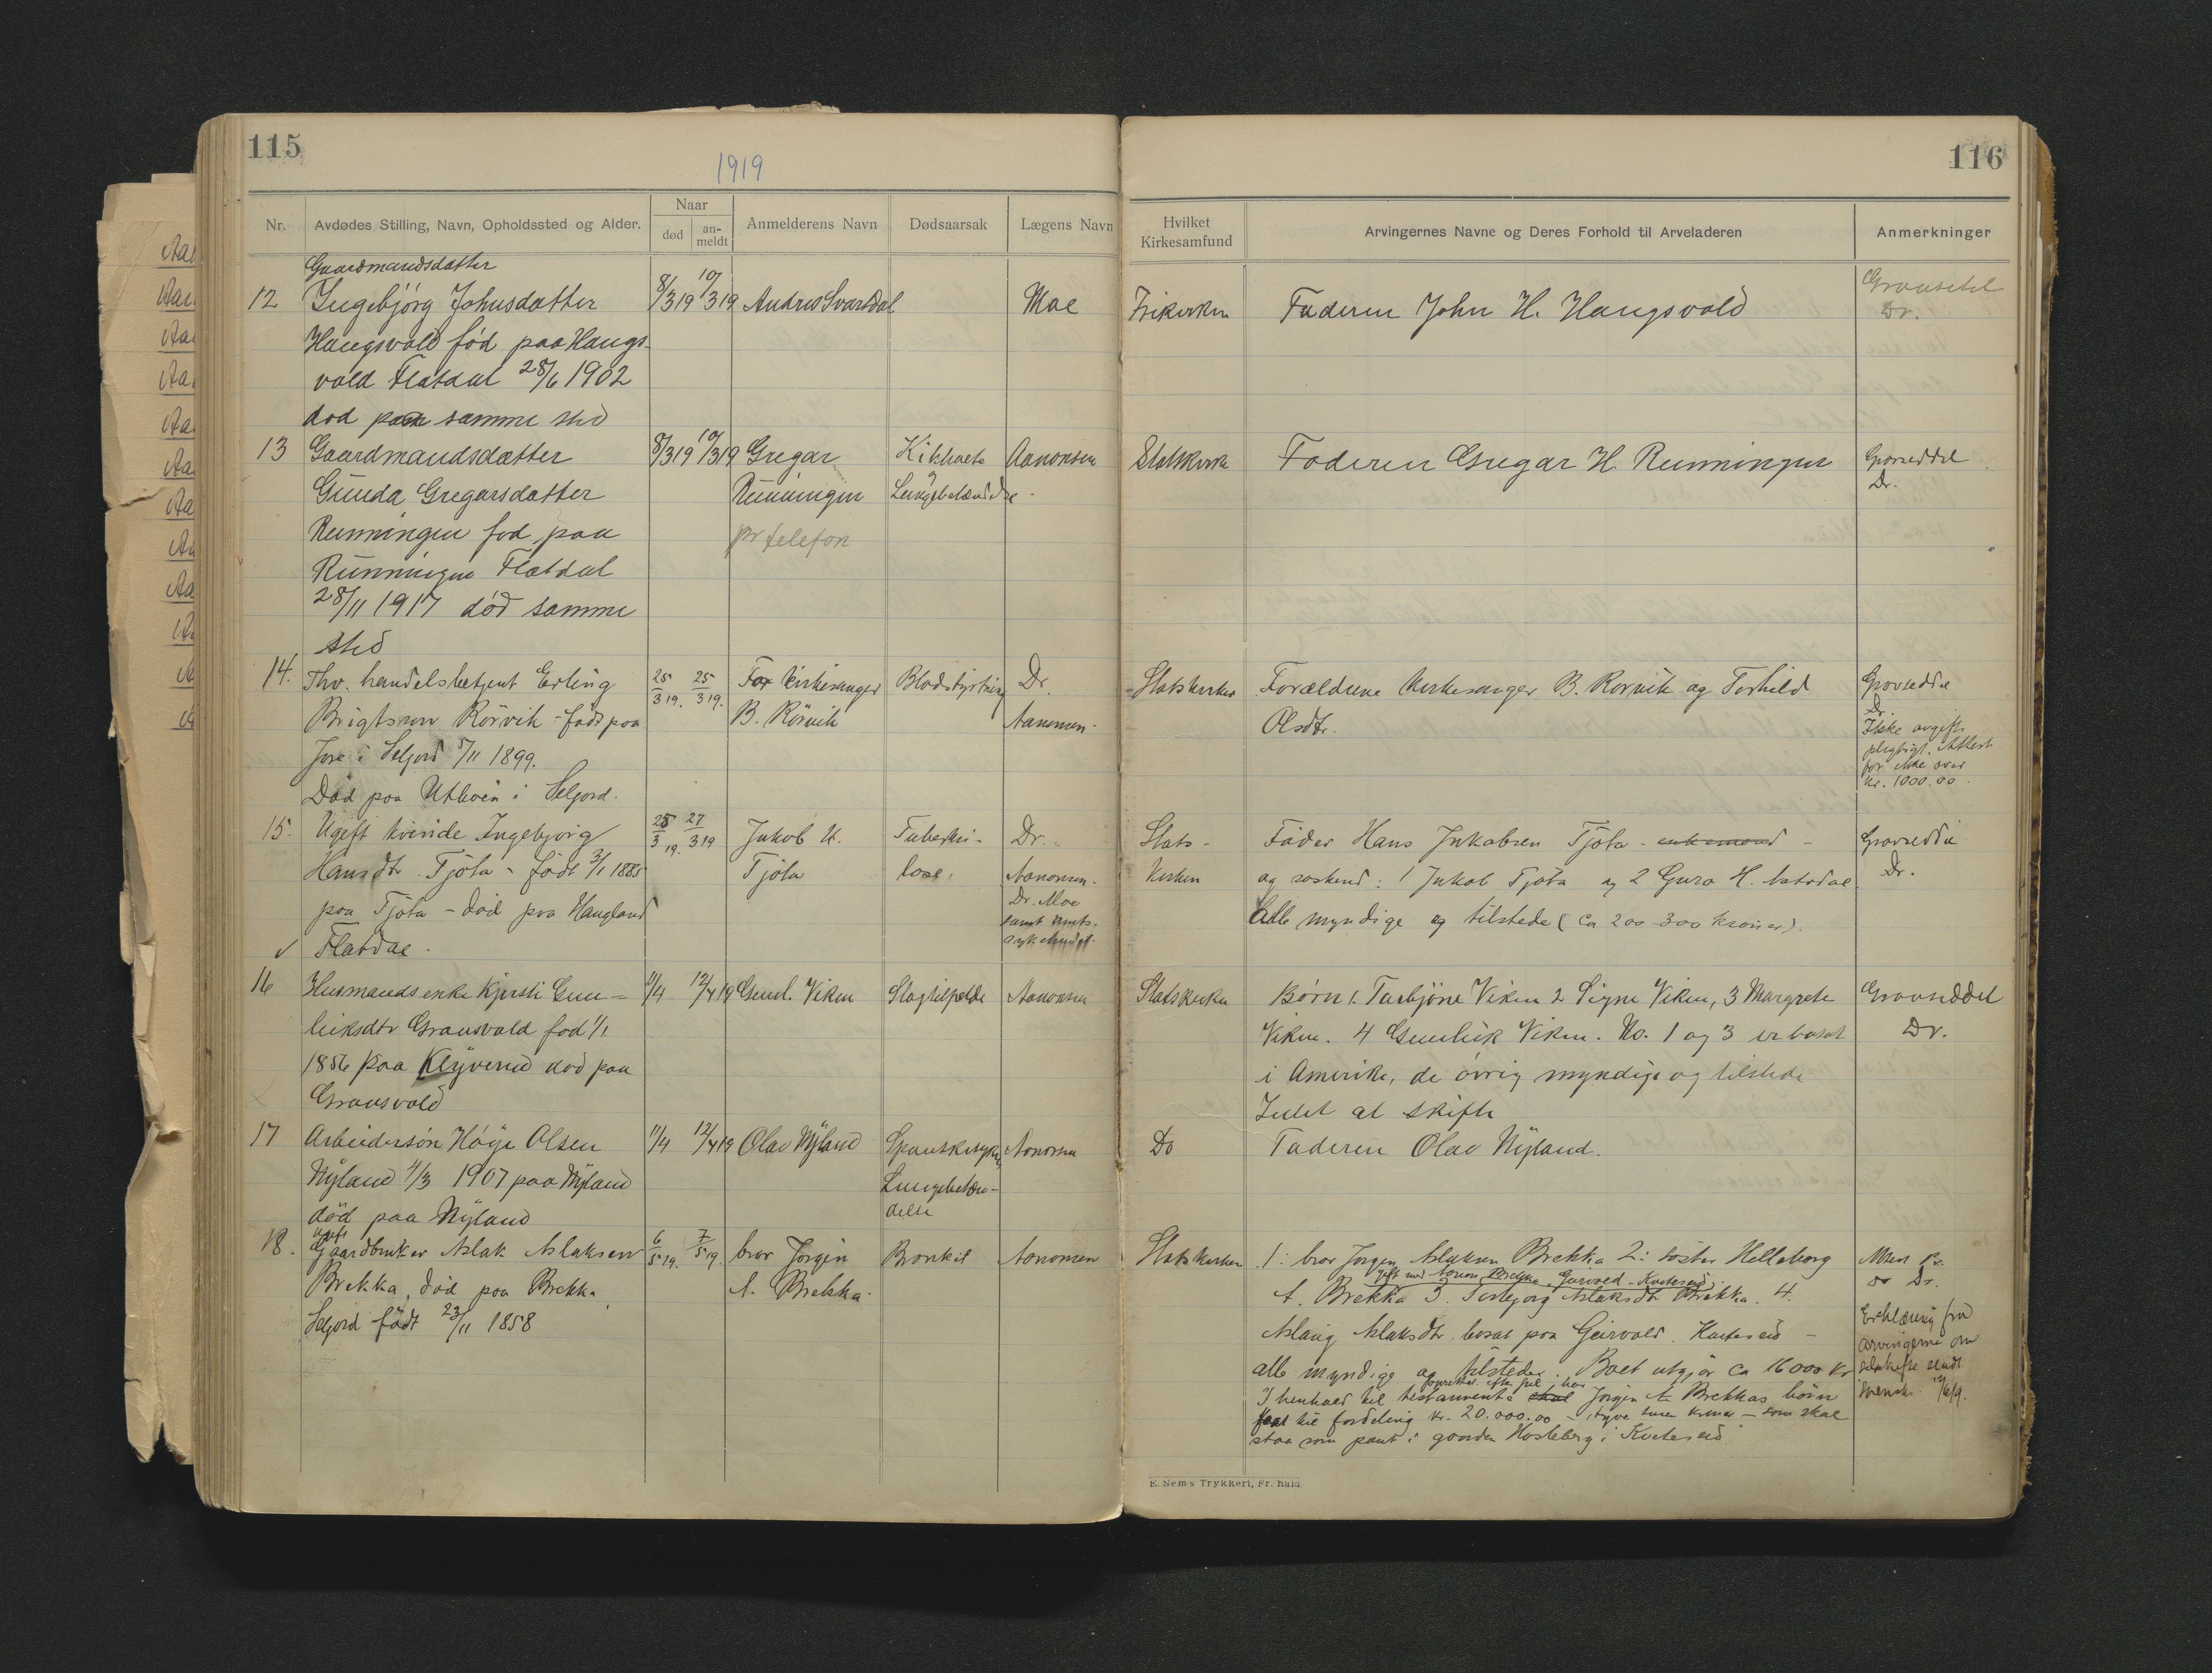 115
1919
Nr.
Avdødes Stilling, Navn, Opholdssted og Alder.
Naar
død
an-
meldt
Anmelderens Navn
Dødsaarsak
Lægens Navn
Gaardmandsdatter
12 Ingebjörg Johnsdatter 8/3 19 10/3 19 Andres Svartdal Moe
Haugsvold fød paa Haugs-
vold Flatdal 28/6 1902
død paa samme sted
13 Gaardmandsdatter 8/3 19 10/3 19 Gregar Kikhoste Aanonsen
Gunda Gregarsdatter Runningen og Lungebetændelse
Runningen fød paa pr telefon
Runningen Flatdal
28/11 1917 död samme
sted
14. Thv. handelsbetjent Erling 25/3 19. 25/3 19. Far kirkesanger Blodstyrtning Dr.
Brigtsson Rörvik - födt paa B. Rörvik Aanonsen.
Jore i Seljord 5/11 1899.
Död paa Utboen i Seljord.
15. Ugift kvinde Ingebjörg 25/3 19. 27/3 19 Jakob H. Tuberku- Dr.
Hansdtr. Tjöta - födt 3/1 1885 Tjöta lose. Aanonsen.
paa Tjöta - död paa Haugland Dr. Moe
Flatdal. samt amts-
16 Husmandsenke Kjersti Gun- 11/4 12/4 19 Gunl. Viken Slagtilfælde Aanonsen
leiksdtr Gransvold fød 1/1
1856 paa Klyverud død paa
Gransvold
17 Arbeidersön Höije Olsen 11/4 12/4 19 Olav Nyland Spanskesyken Aanonsen
Nyland 4/3 1907 paa Nyland Lungebetæn-
död paa Nyland delse
ugift
18. Gaardbruker Aslak Aslaksen 6/5 19. 7/5 19. bror Jörgen Bronkit Aanonsen
Brekka, död paa Brekka A. Brekka.
Seljord födt 23/11 1858
116
Hvilket
Kirkesamfund
Arvingernes Navne og Deres Forhold til Arveladeren
Anmerkninger
Frikirken Faderen John H. Haugsvold Gravsetel
Dr.
Statskirke Faderen Gregar H. Runningen Gravseddel
Dr.
Statskirken Forældrene kirkesanger B. Rorvik og Torhild Gravseddel
Olsdtr. Dr.
Ikke avgifts
pligtigt. Attest
for ikke over
kr. 1000.00.
Stats- Fader Hans Jakobsen Tjöta - enkemand - Gravseddel
kirken og søskend: 1 Jakob Tjöta og 2 Guro H. Natadal Dr.
Alle myndige og tilstede (ca 200-300 kroner).
Statskirken Börn 1. Tarbjöne Viken 2 Signe Viken, 3 Margrete Gravseddel
Viken. 4 Gunleik Viken. No. 1 og 3 er bosat Dr.
i Amerika, de övrig myndige og tilstede
Intet at skifte
Do Faderen Olav Nyland.
Statskirken 1: bror Jørgen Aslaksen Brekka 2: søster Helleborg Attest Pr.
gift med Geirvold - Kviteseid do Dr.
A. Brekka 3. Torbjørg Aslaksdtr Brekka. 4.
Aslaug Aslaksdtr. bosat paa Geirvold. Kviteseid - Erklæring fra
alle myndige og tilstede. Boet utgjör ca 16000 kr arvingerne om
oprettet
I henhold til testamente skal Jörgen A Brekkas börn selvskifte sendt
faat til fordeling kr. 20.000.00 - tyve tusen kroner - som skal
staa som pant i gaarden Hosleberg i Kviteseid
E. Sems Trykkeri, Fr.hald.